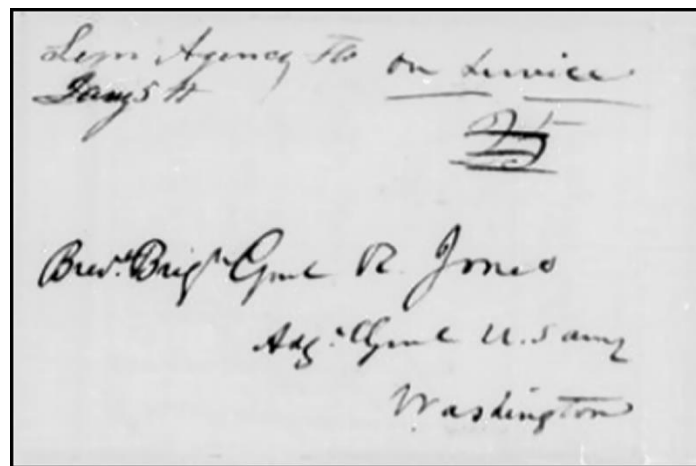 Sem Agency Flo
Jany 5th
On Service
25
Brevt. Brigr Genl R. Jones
Adjt. Genl U.S army
Washington